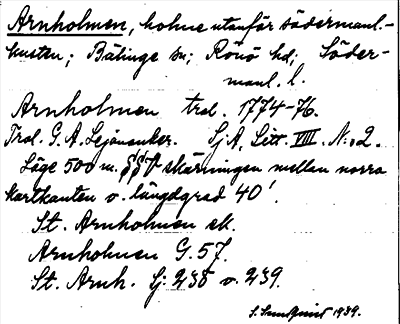 Arnholmen, holme utanför södermanl.-
kusten; Bälinge sn; Rönö hd; Söder-
manl. l.
Arnholmen trol. 1774-76.
Trol. G. A. Lejonanker. Sj.A, Litt. VIII. N:o 2.
Läge 500 m. SSV skärningen mellan norra
kartkanten o. längdgrad 40'.
St. Arnholmen ek.
Arnholmen G. 57.
St. Arnh. Sj: 238 o. 239.
S. Sundquist 1939.